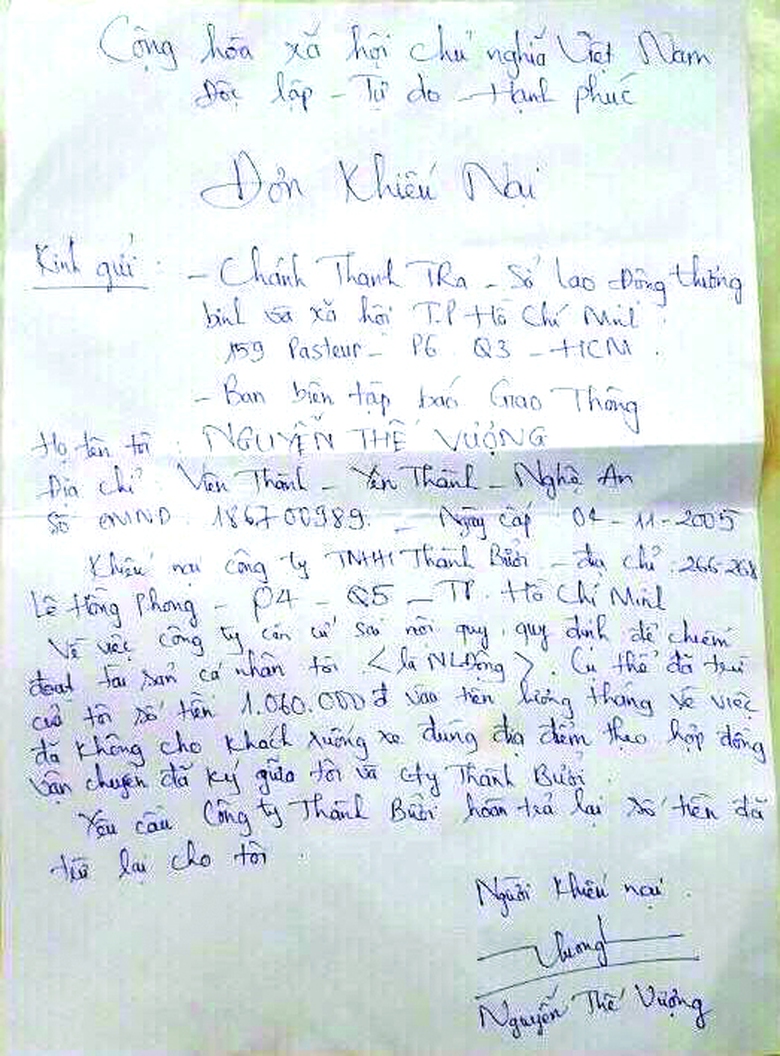 Cộng hòa xã hội chủ nghĩa Việt Nam
Độc lập - Tự do - Hạnh phúc
Đơn Khiếu Nại
Kính gửi : - Chánh Thanh TRa - Sở lao Động thương
binh và xã hội T.P Hồ Chí Minh.
159 Pasteur - P6 Q3 - HCM.
- Ban biên tập báo Giao Thông
Họ tên tôi : NGUYỄN THẾ VƯỢNG
Địa chỉ : Viên Thành - Yên Thành - Nghệ An
Số CMND. 186700989. - Ngày cấp 04 - 11 - 2005
Khiếu nại công ty TNHH Thành Bưởi - địa chỉ : 266-268
Lê Hồng Phong - P4 - Q5 - TP. Hồ Chí Minh
Về việc công ty căn cứ sai nội quy, quy định để chiếm
đoạt tài sản cá nhân tôi < là NLĐộng >. Cụ thể đã trừ
của tôi số tiền 1.060.000đ vào tiền lương tháng về việc
đã không cho khách xuống xe đúng địa điểm theo hợp đồng
vận chuyển đã ký giữa tôi và cty Thành Bưởi.
Yêu cầu Công ty Thành Bưởi hoàn trả lại số tiền đã
trừ lại cho tôi.
Người khiếu nại.
Vượng
Nguyễn Thế Vượng